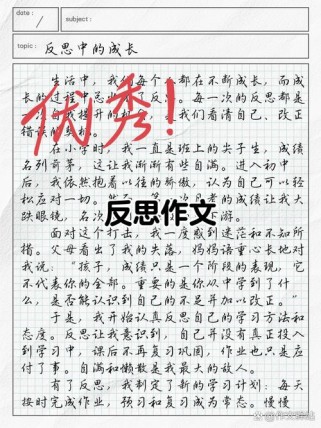 date :
/
subject:
topic : 反思中的成长
生活中，我们每个 都在不断成长，而成
长的过程中总 了反 。每一次的反思都是
一次自我提升的机 们看清自己、改正
错误的
在小学时，我一直是班上的尖子生，成绩
名列前茅，这让我渐渐有些自满。进入初中
后，我依然抱着以往的骄傲，认为自己可以轻
松应对一切。 的成绩让我大
跌眼镜，名次 下游。
面对这个打击，我一度感到迷茫和不知所
措。父母看出了我的失落，妈妈语重心长地对
我说：“孩子，成绩只是一个阶段的表现，它
不代表你的全部。重要的是你从中学到了什
么，是否能认识到自己的不足并加以改正。”
于是，我开始认真反思自己的学习方法和
态度。反思让我意识到，自己并没有真正投入
到学习中，课后不再复习巩固，作业也只是应
付了事。自满和懒散是我最大的敌人。
有了反思，我制定了新的学习计划：每天
按时完成作业，预习和复习成为常态。慢慢
优秀！
反思作文